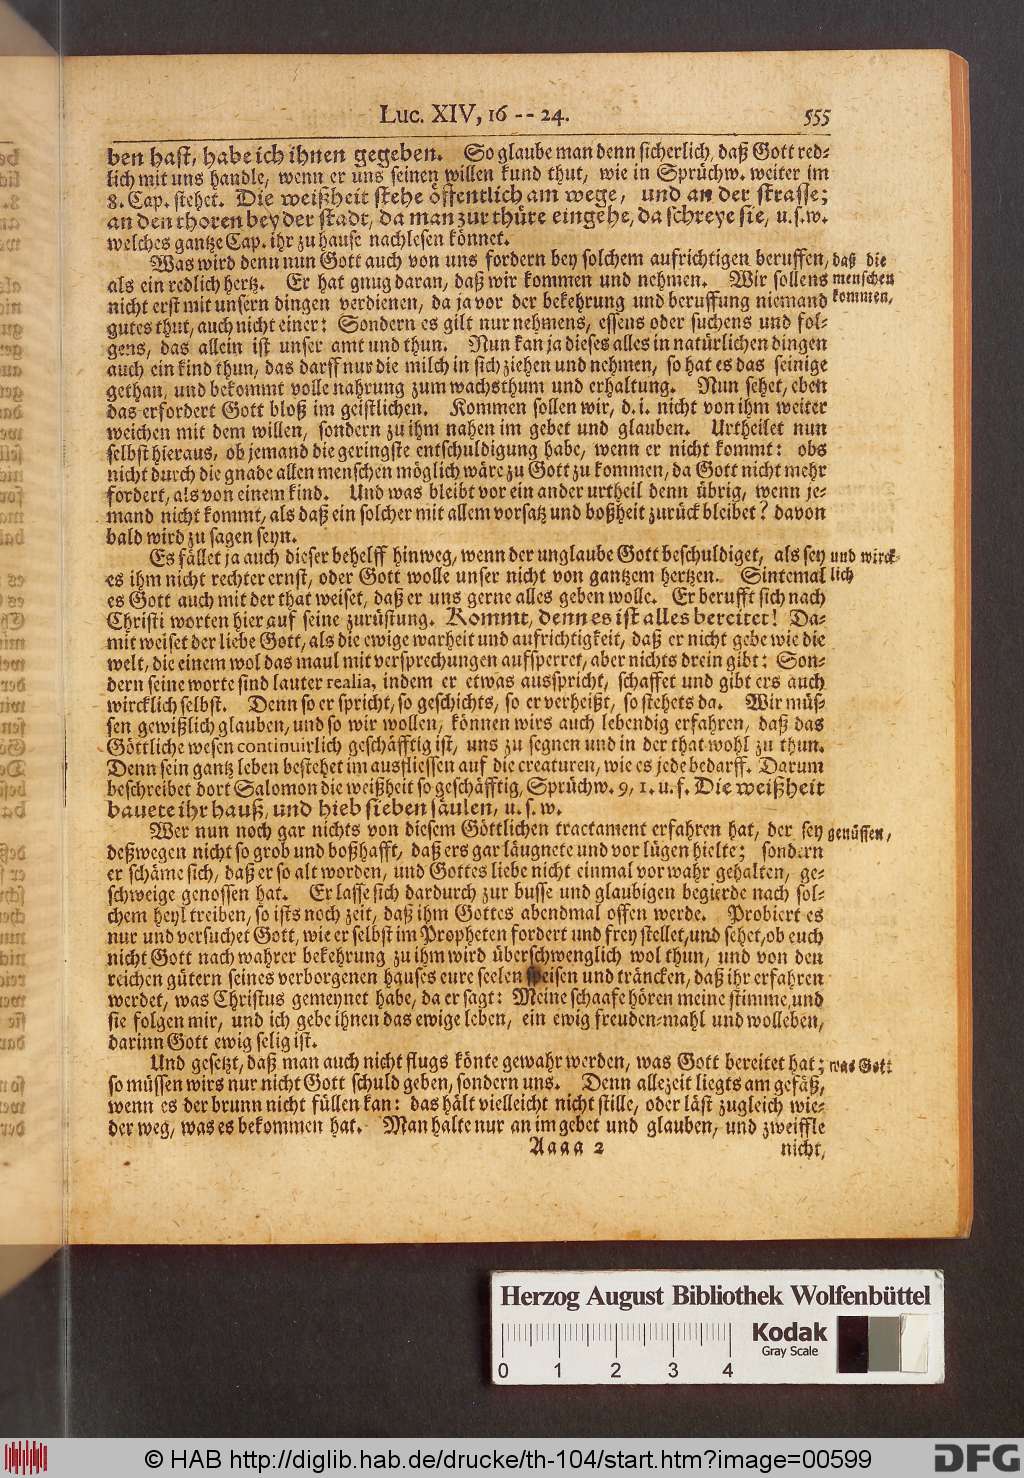 Luc. XIV, 16 -- 24. 555
ben hast, habe ich ihnen gegeben. So glaube man denn sicherlich, daß Gott red-
lich mit uns handle, wenn er uns seinen willen kund thut, wie in Sprüchw. weiter im
8. Cap. stehet. Die weißheit stehe öffentlich am wege, und an der strasse;
an den thoren bey der stadt, da man zur thüre eingehe, da schreye sie, u. s. w.
welches gantze Cap. ihr zu hause nachlesen könnet.
Was wird denn nun Gott auch von uns fordern bey solchem aufrichtigen beruffen, daß die
als ein redlich hertz. Er hat gnug daran, daß wir kommen und nehmen. Wir sollens menschen
nicht erst mit unsern dingen verdienen, da ja vor der bekehrung und beruffung niemand kommen,
gutes thut, auch nicht einer: Sondern es gilt nur nehmens, essens oder suchens und fol-
gens, das allein ist unser amt und thun. Nun kan ja dieses alles in natürlichen dingen
auch ein kind thun, das darff nur die milch in sich ziehen und nehmen, so hat es das seinige
gethan, und bekommt volle nahrung zum wachsthum und erhaltung. Nun sehet, eben
das erfordert Gott bloß im geistlichen. Kommen sollen wir, d. i. nicht von ihm weiter
weichen mit dem willen, sondern zu ihm nahen im gebet und glauben. Urtheilet nun
selbst hieraus, ob jemand die geringste entschuldigung habe, wenn er nicht kommt: obs
nicht durch die gnade allen menschen möglich wäre zu Gott zu kommen, da Gott nicht mehr
fordert, als von einem kind. Und was bleibt vor ein ander urtheil denn übrig, wenn je-
mand nicht kommt, als daß ein solcher mit allem vorsatz und boßheit zurück bleibet? davon
bald wird zu sagen seyn.
Es fället ja auch dieser behelff hinweg, wenn der unglaube Gott beschuldiget, als sey und wirck-
es ihm nicht rechter ernst, oder Gott wolle unser nicht von gantzem hertzen. Sintemal lich
es Gott auch mit der that weiset, daß er uns gerne alles geben wolle. Er berufft sich nach
Christi worten hier auf seine zurüstung. Kommt, denn es ist alles bereitet! Da-
mit weiset der liebe Gott, als die ewige warheit und aufrichtigkeit, daß er nicht gehe wie die
welt, die einem wol das maul mit versprechungen aufsperret, aber nichts drein gibt: Son-
dern seine worte sind lauter realia, indem er etwas ausspricht, schaffet und gibt ers auch
wircklich selbst. Denn so er spricht, so geschichts, so er verheißt, so stehets da. Wir müs-
sen gewißlich glauben, und so wir wollen, können wirs auch lebendig erfahren, daß das
Göttliche wesen continuirlich geschäfftig ist, uns zu segnen und in der that wohl zu thun.
Denn sein gantz leben bestehet im ausfliessen auf die creaturen, wie es jede bedarff. Darum
beschreibet dort Salomon die weißheit so geschäfftig, Sprüchw. 9, 1. u. f. Die weißheit
bauete ihr hauß, und hieb sieben säulen, u. s. w.
Wer nun noch gar nichts von diesem Göttlichen tractament erfahren hat, der sey genüssen,
deßwegen nicht so grob und boßhafft, daß ers gar läugnete und vor lügen hielte; sondern
er schäme sich, daß er so alt worden, und Gottes liebe nicht einmal vor wahr gehalten, ge-
schweige genossen hat. Er lasse sich dardurch zur busse und glaubigen begierde nach sol-
chem heyl treiben, so ists noch zeit, daß ihm Gottes abendmal offen werde. Probiert es
nur und versuchet Gott, wie er selbst im Propheten fordert und frey stellet, und sehet, ob euch
nicht Gott nach wahrer bekehrung zu ihm wird überschwenglich wol thun, und von den
reichen gütern seines verborgenen hauses eure seelen speisen und träncken, daß ihr erfahren
werdet, was Christus gemeynet habe, da er sagt: Meine schaafe hören meine stimme, und
sie folgen mir, und ich gebe ihnen das ewige leben, ein ewig freuden-mahl und wolleben,
darinn Gott ewig selig ist.
Und gesetzt, daß man auch nicht flugs könte gewahr werden, was Gott bereitet hat; was Gott
so müssen wirs nur nicht Gott schuld geben, sondern uns. Denn allezeit liegts am gefäß,
wenn es der brunn nicht füllen kan: das hält vielleicht nicht stille, oder läst zugleich wie-
der weg, was es bekommen hat. Man halte nur an im gebet und glauben, und zweiffle
Aaaa 2 nicht,
Herzog August Bibliothek Wolfenbüttel
Kodak
Gray Scale
0 1 2 3 4
© HAB http://diglib.hab.de/drucke/th-104/start.htm?image=00599
DFG